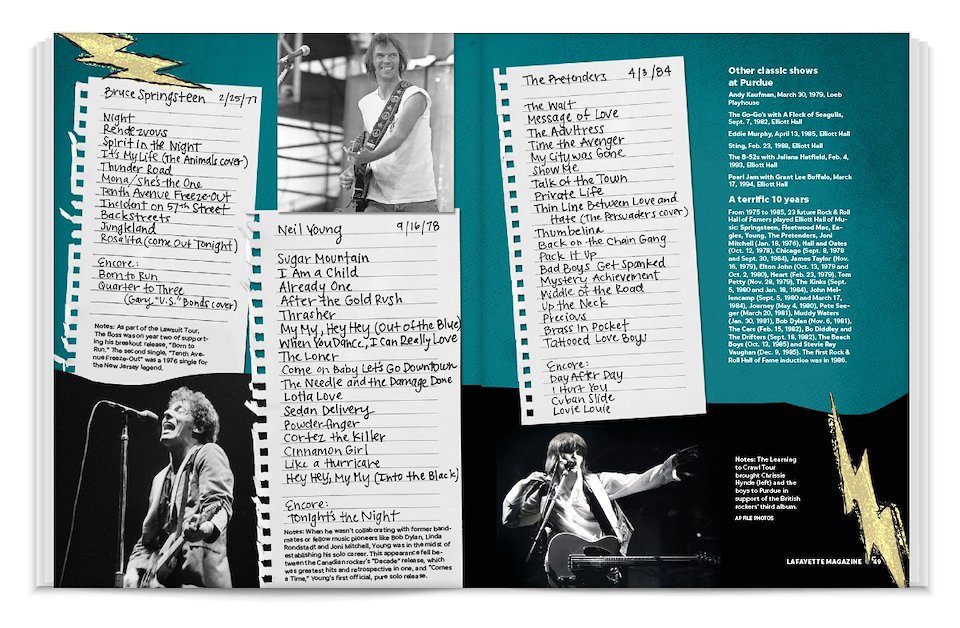 Bruce Springsteen 2/25/77
Night
Rendezvous
Spirit in the Night
It's My Life (The Animals cover)
Thunder Road
Mona/She's the One
Tenth Avenue Freeze-Out
Incident on 57th Street
Backstreets
Jungleland
Rosalita (Come Out Tonight)
Encore:
Born to Run
Quarter to Three
(Gary "U.S." Bonds cover)
Notes: As part of the Lawsuit Tour,
The Boss was on year two of support-
ing his breakout release, "Born to
Run." The second single, "Tenth Ave-
nue Freeze-Out" was a 1976 single for
the New Jersey legend.
Neil Young 9/16/78
Sugar Mountain
I Am a Child
Already One
After the Gold Rush
Thrasher
My My, Hey Hey (Out of the Blue)
When You Dance, I Can Really Love
The Loner
Come on Baby Let's Go Downtown
The Needle and the Damage Done
Lotta Love
Sedan Delivery
Powderfinger
Cortez the Killer
Cinnamon Girl
Like a Hurricane
Hey Hey, My My (Into the Black)
Encore:
Tonight's the Night
Notes: When he wasn't collaborating with former band-
mates or fellow music pioneers like Bob Dylan, Linda
Rondstadt and Joni Mitchell, Young was in the midst of
establishing his solo career. This appearance fell be-
tween the Canadian rocker's "Decade" release, which
was greatest hits and retrospective in one, and "Comes
a Time," Young's first official, pure solo release.
The Pretenders 4/3/84
The Wait
Message of Love
The Adultress
Time the Avenger
My City was Gone
Show Me
Talk of the Town
Private Life
Thin Line Between Love and
Hate (The Persuaders cover)
Thumbelina
Back on the Chain Gang
Pack it Up
Bad Boys Get Spanked
Mystery Achievement
Middle of the Road
Up the Neck
Precious
Brass In Pocket
Tattooed Love Boys
Encore:
Day After Day
I Hurt You
Cuban Slide
Louie Louie
Other classic shows
at Purdue
Andy Kaufman, March 30, 1979, Loeb
Playhouse
The Go-Go's with A Flock of Seagulls,
Sept. 7, 1982, Elliott Hall
Eddie Murphy, April 13, 1985, Elliott Hall
Sting, Feb. 23, 1988, Elliott Hall
The B-52s with Juliana Hatfield, Feb. 4,
1993, Elliott Hall
Pearl Jam with Grant Lee Buffalo, March
17, 1994, Elliott Hall
A terrific 10 years
From 1975 to 1985, 23 future Rock & Roll
Hall of Famers played Elliott Hall of Mu-
sic: Springsteen, Fleetwood Mac, Ea-
gles, Young, The Pretenders, Joni
Mitchell (Jan. 18, 1976), Hall and Oates
(Oct. 12, 1978), Chicago (Sept. 8, 1978
and Sept. 30, 1984), James Taylor (Nov.
16, 1979), Elton John (Oct. 13, 1979 and
Oct. 2, 1980), Heart (Feb. 23, 1979), Tom
Petty (Nov. 28, 1979), The Kinks (Sept.
5, 1980 and Jan. 18, 1984), John Mel-
lencamp (Sept. 5, 1980 and March 17,
1984), Journey (May 4, 1980), Pete See-
ger (March 20, 1981), Muddy Waters
(Jan. 30, 1981), Bob Dylan (Nov. 6, 1981),
The Cars (Feb. 15, 1982), Bo Diddley and
The Drifters (Sept. 18, 1982), The Beach
Boys (Oct. 13, 1985) and Stevie Ray
Vaughan (Dec. 9, 1985). The first Rock &
Roll Hall of Fame induction was in 1986.
Notes: The Learning
to Crawl Tour
brought Chrissie
Hynde (left) and the
boys to Purdue in
support of the British
rockers' third album.
AP FILE PHOTOS
LAFAYETTE MAGAZINE 49